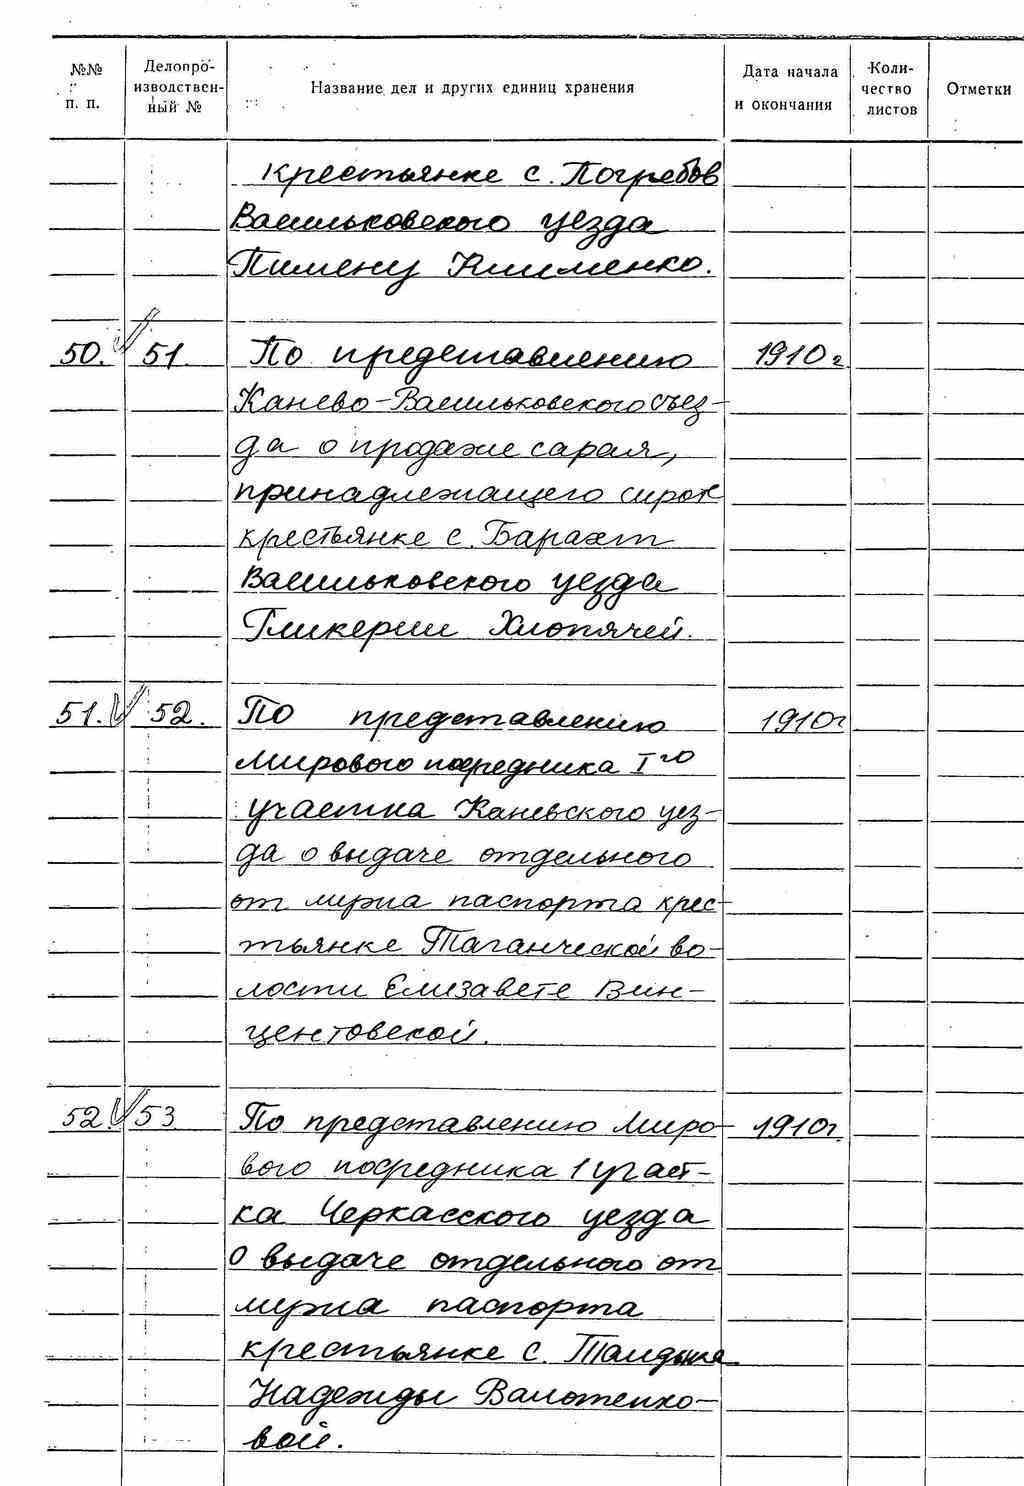 №№ п. п. Делопроизводственный № Название дел и других единиц хранения Дата начала и окончания Количество листов Отметки
крестьянке с. Погребов
Васильковского уезда
Пимену Клименко.
50. 51. По представлению 1910 г
Канево-Васильковского съез-
да о продаже сарая,
принадлежащего сирот
крестьянке с. Барахт
Васильковского уезда
Гликерии Хлопячей.
51. 52. По представлению 1910г
Мирового посредника I го
участка Каневского уез-
да о выдаче отдельного
от мужа паспорта крес-
тьянке Таганческой во-
лости Елизавете Вин-
центовской.
52. 53 По представлению Миро- 1910г.
вого посредника 1 участ-
ка Черкасского уезда
о выдаче отдельного от
мужа паспорта
крестьянке с.
Надежды
вой.